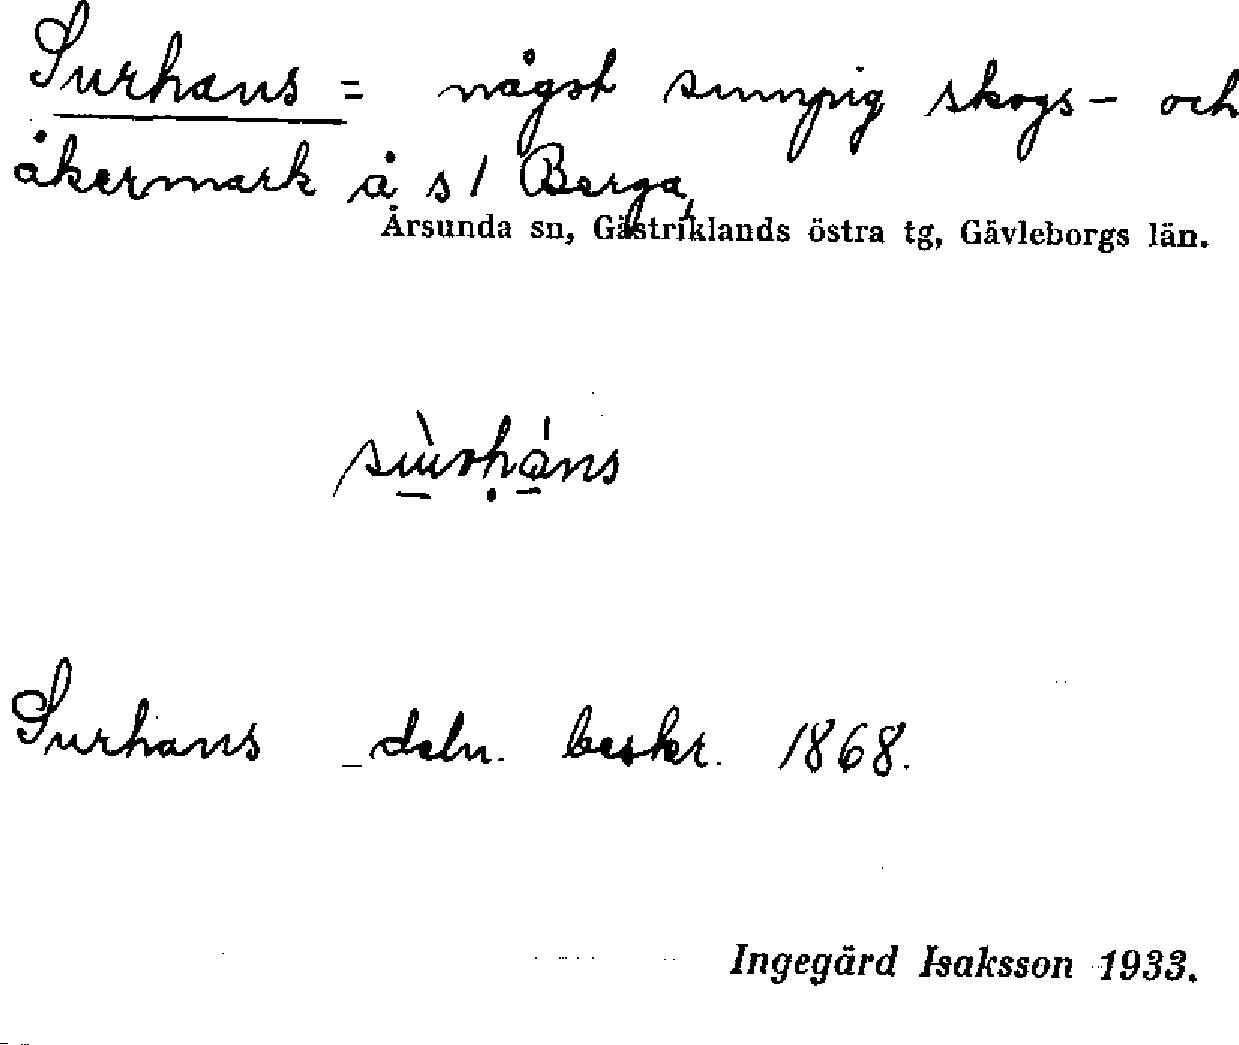 Surhans = något sumpig skogs- och
åkermark å s/ Berga,
Årsunda sn, Gästriklands östra tg, Gävleborgs län.
Surhans deln. beskr. 1868.
Ingegärd Isaksson 1933.